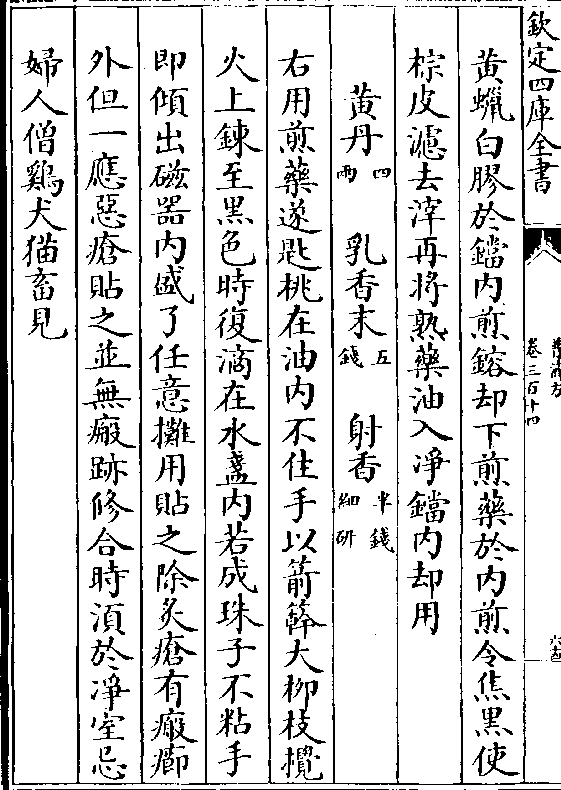 欽定四庫全書
普濟方
卷三百十四
黄蠟白膠於鐺内煎鎔却下煎藥於内煎令焦黑使
棕皮濾去滓再將熟藥油入凈鐺内却用
黄丹四兩 乳香末五錢 射香半錢細研
右用煎藥遂匙挑在油内不住手以箭簳大栁枝攪
火上錬至黒色時復滴在水盞内若成珠子不粘手
即傾出磁器内盛了任意攤用貼之除炙瘡有瘢癤
外但一應惡瘡貼之並無瘢跡修合時湏於凈室忌
婦人僧鷄犬猫畜見